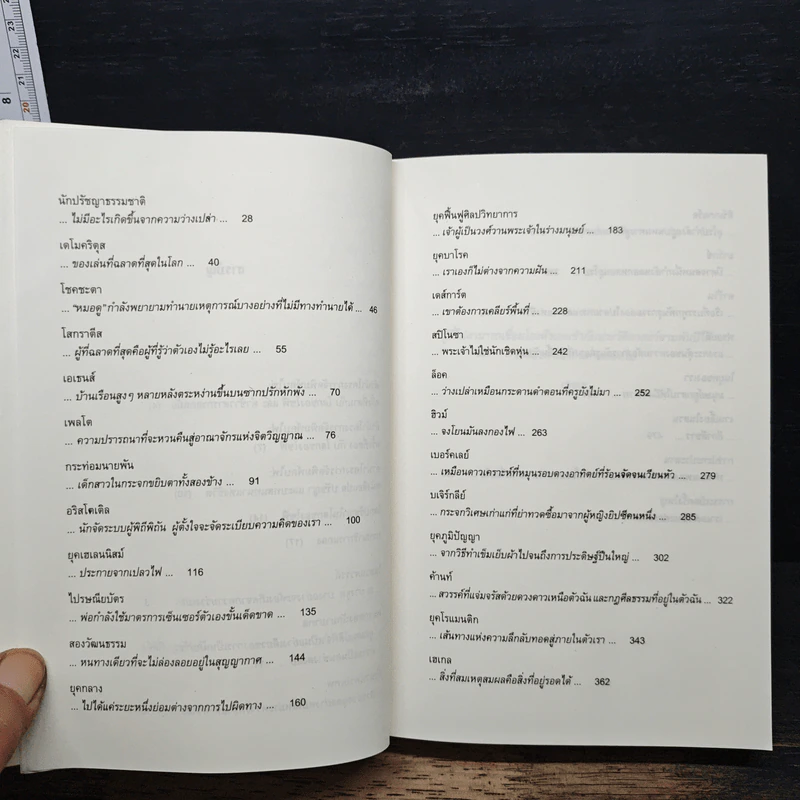 นักปรัชญาธรรมชาติ
... ไม่มีอะไรเกิดขึ้นจากความว่างเปล่า ... 28
เดโมคริตุส
... ของเล่นที่ฉลาดที่สุดในโลก ... 40
โชคชะตา
... "หมอดู" กำลังพยายามทำนายเหตุการณ์บางอย่างที่ไม่มีทางทำนายได้ ... 46
โสกราตีส
... ผู้ที่ฉลาดที่สุดคือผู้ที่รู้ว่าตัวเองไม่รู้อะไรเลย ... 55
เอเธนส์
... บ้านเรือนสูงๆ หลายหลังตระหง่านขึ้นบนซากปรักหักพัง ... 70
เพลโต
... ความปรารถนาที่จะหวนคืนสู่อาณาจักรแห่งจิตวิญญาณ ... 76
กระท่อมนายพัน
... เด็กสาวในกระจกขยิบตาทั้งสองข้าง ... 91
อริสโตเติล
... นักจัดระบบผู้พิถีพิถัน ผู้ตั้งใจจะจัดระเบียบความคิดของเรา ... 100
ยุคเฮเลนนิสม์
... ประกายจากเปลวไฟ ... 116
ไปรษณียบัตร
... พ่อกำลังใช้มาตรการเซ็นเซอร์ตัวเองขั้นเด็ดขาด ... 135
สองวัฒนธรรม
... หนทางเดียวที่จะไม่ล่องลอยอยู่ในสุญญากาศ ... 144
ยุคกลาง
... ไปได้แค่ระยะหนึ่งย่อมต่างจากการไปผิดทาง ... 160
ยุคฟื้นฟูศิลปวิทยาการ
... เจ้าผู้เป็นวงศ์วานพระเจ้าในร่างมนุษย์ ... 183
ยุคบาโรค
... เราเองก็ไม่ต่างจากความฝัน ... 211
เดส์การ์ต
... เขาต้องการเคลียร์พื้นที่ ... 228
สปิโนซา
... พระเจ้าไม่ใช่นักเชิดหุ่น ... 242
ล็อค
... ว่างเปล่าเหมือนกระดานดำตอนที่ครูยังไม่มา ... 252
ฮิวม์
... จงโยนมันลงกองไฟ ... 263
เบอร์คเลย์
... เหมือนดาวเคราะห์ที่หมุนรอบดวงอาทิตย์ที่ร้อนจัดจนเวียนหัว ... 279
บเจิร์กลีย์
... กระจกวิเศษเก่าแก่ที่ย่าทวดซื้อมาจากผู้หญิงยิปซีคนหนึ่ง ... 285
ยุคภูมิปัญญา
... จากวิธีทำเข็มเย็บผ้าไปจนถึงการประดิษฐ์ปืนใหญ่ ... 302
ค้านท์
... สวรรค์ที่แจ่มจรัสด้วยดวงดาวเหนือตัวฉัน และกฎศีลธรรมที่อยู่ในตัวฉัน ... 322
ยุคโรแมนติก
... เส้นทางแห่งความลึกลับทอดสู่ภายในตัวเรา ... 343
เฮเกล
... สิ่งที่สมเหตุสมผลคือสิ่งที่อยู่รอดได้ ... 362
23
22
21
20
8